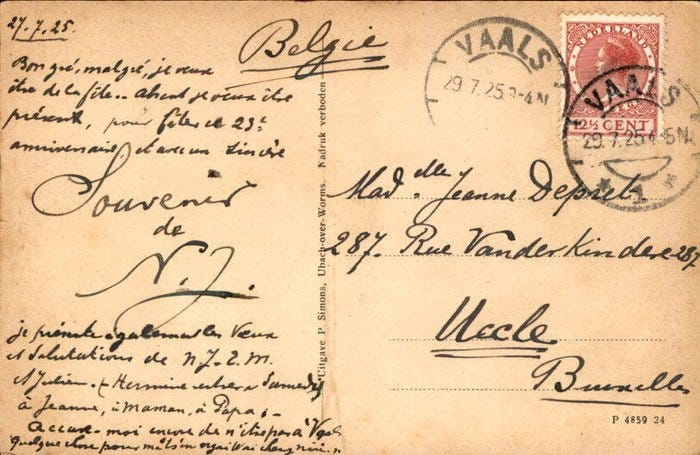 27.7.25.
Belgie
Bon gré, malgré, je veux
être de la fête.. absent je veux être
présent, pour fêter ce 23e
anniversaire d'avec un sincère
Souvenir
de
N.J.
je présente également les Vœux
et Salutations de N.J. 2. M.
St Julien. Hermine
à Jeanne, à Maman, à Papa.
moi encore de n'être pas à
quelque chose pour
Uitgave P Simons, Ubach-over-Worms. Nadruk verboden
VAALS
29.7.25.3-4N
NEDERLAND
12½ CENT
VAALS
29.7.25 4-5N
1
Madelle Jeanne Depret
287. Rue Vanderkindere 287
Uccle
Bruxelles
P 4859 24